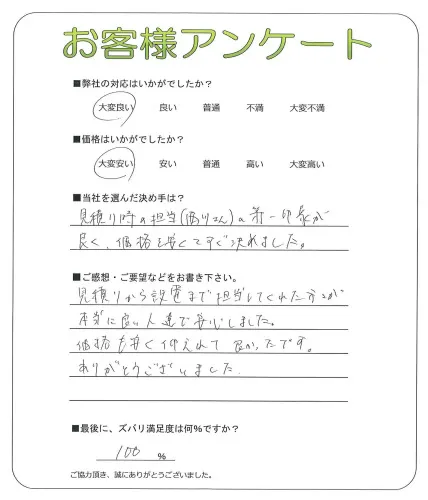 お客様アンケート
■弊社の対応はいかがでしたか？
大変良い 良い 普通 不満 大変不満
■価格はいかがでしたか？
大変安い 安い 普通 高い 大変高い
■当社を選んだ決め手は？
見積り時の担当(さん)の第一印象が
良く、価格も安くてすぐ決めました。
■ご感想・ご要望などをお書き下さい。
見積りから設置まで担当してくれた方々が
本当に良い人達で安心しました。
価格も安く行えて良かったです。
ありがとうございました。
■最後に、ズバリ満足度は何％ですか？
100 %
ご協力頂き、誠にありがとうございました。